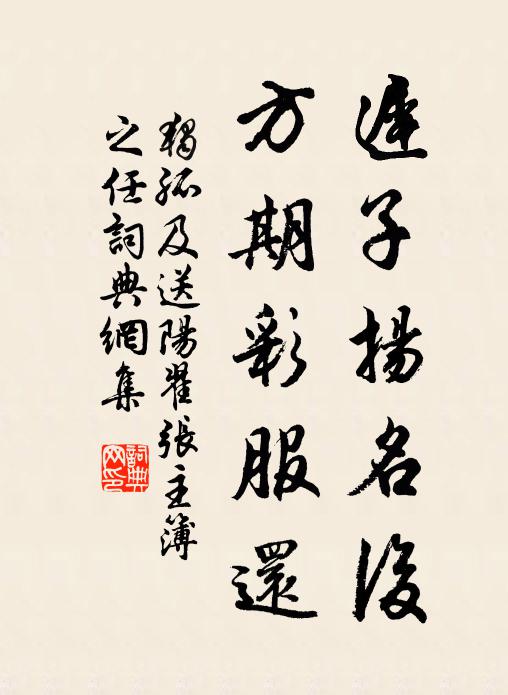 遲子揚名後
方期彩服還
獨孤及送陽翟張主簿
之任詞典網集
詞典
网印